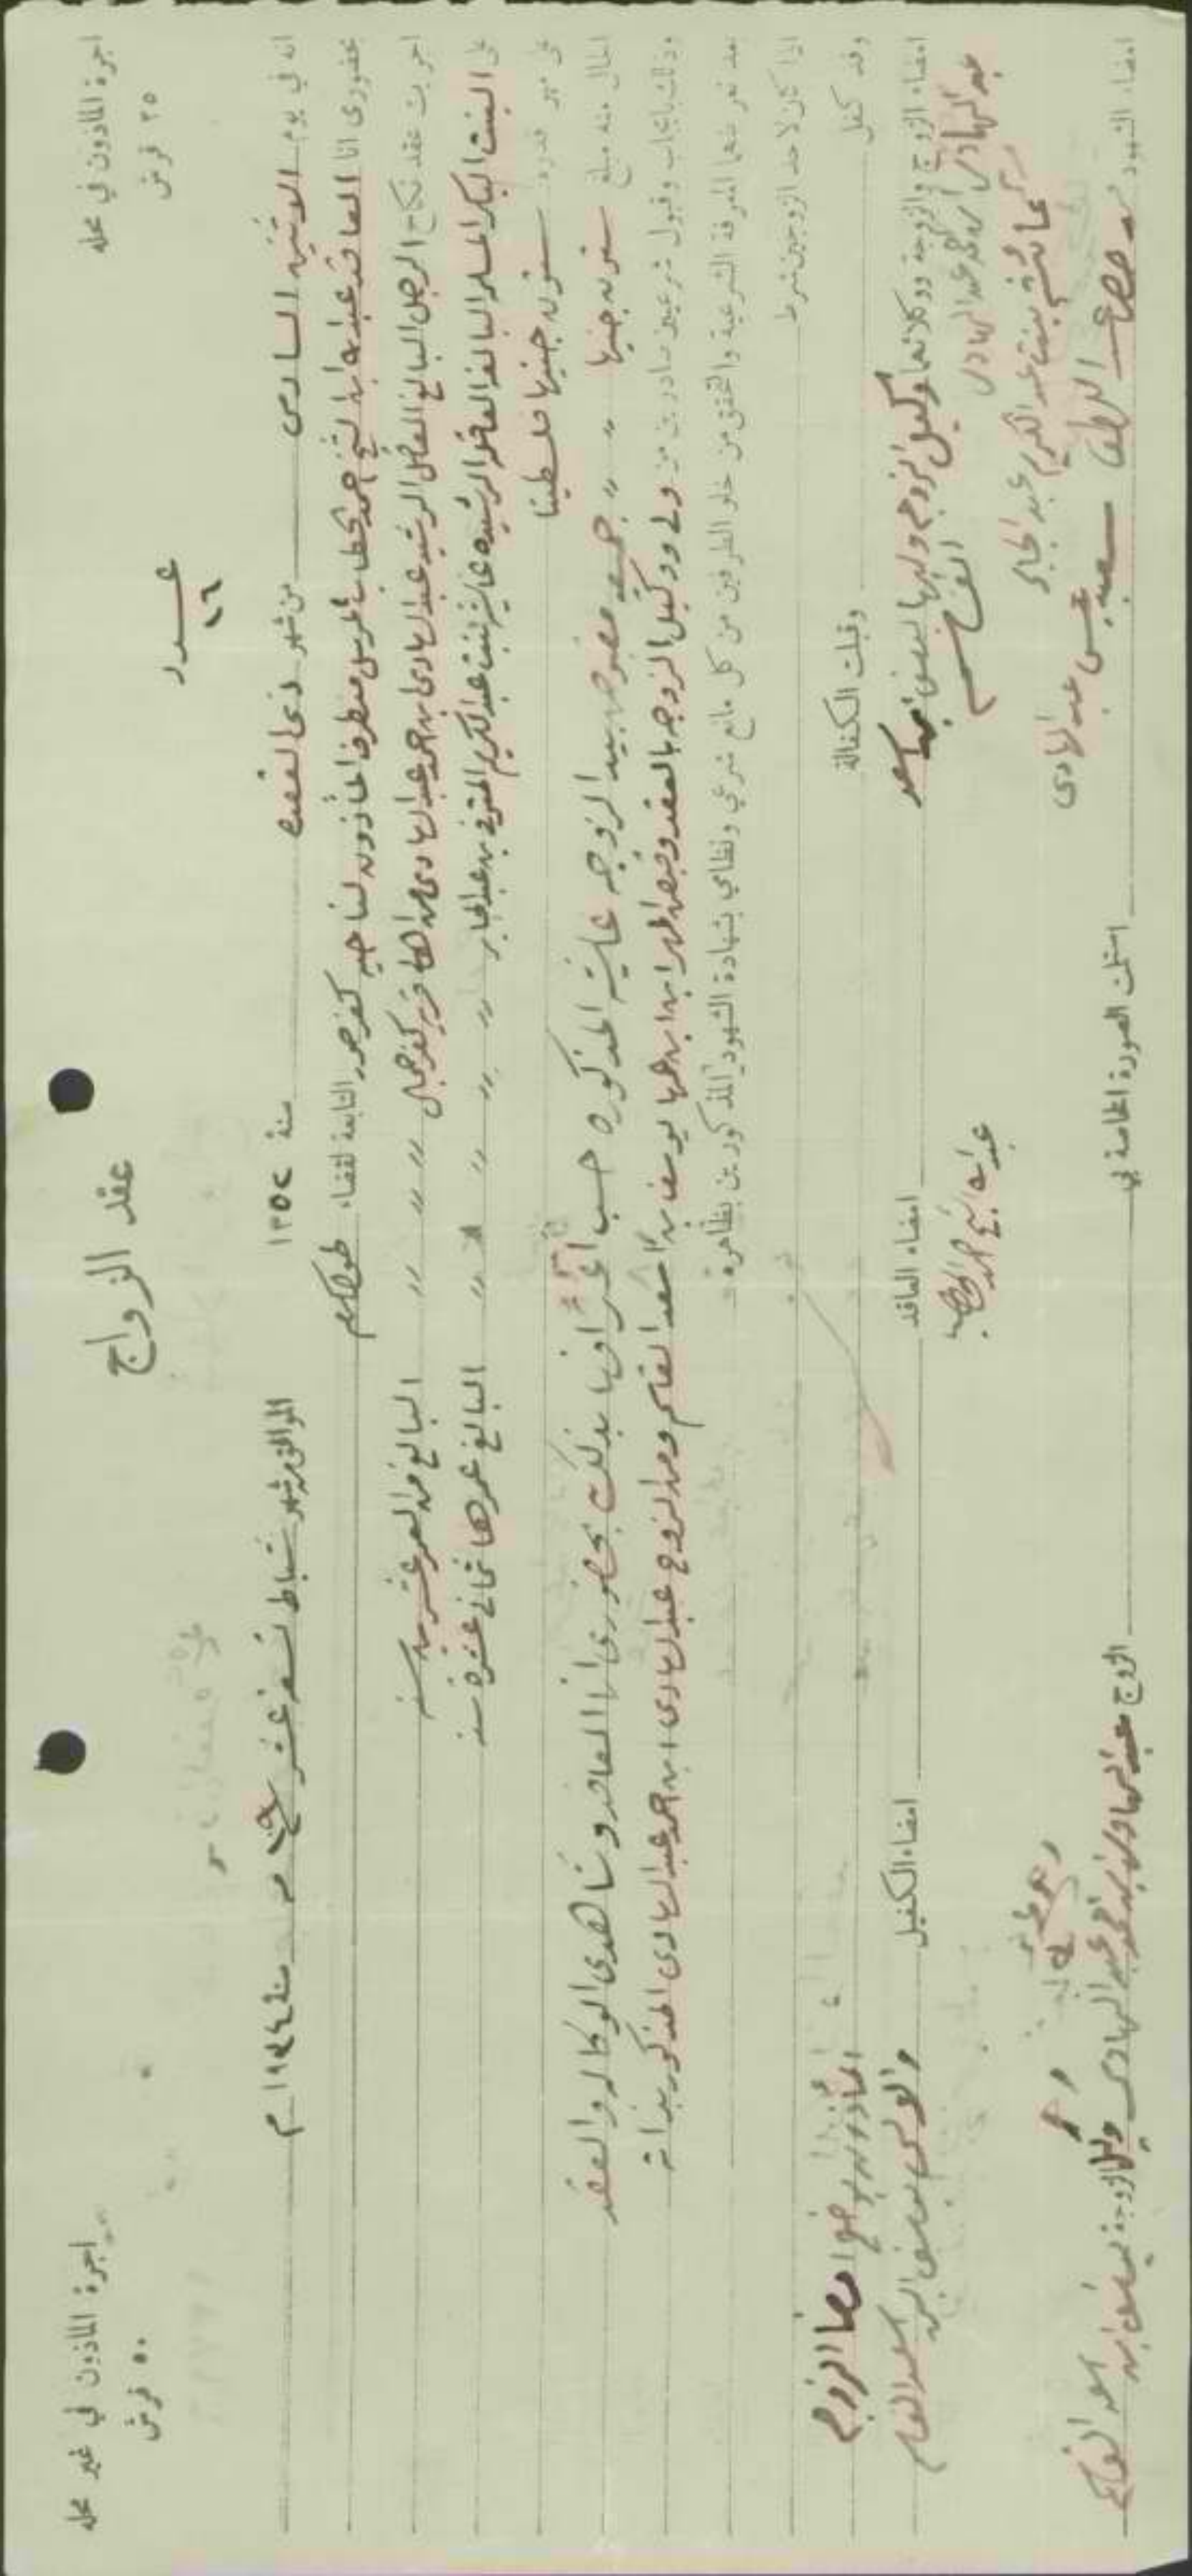 عقد الزواج
اجرة المأذون في محله
٢٥ قرش
عدد
١٦
اجرة المأذون في غير محله
٥٠ قرش
انه في يوم الاثنين السادس من شهر ذي القعده سنة ١٣٥٢ الموافق شهر شباط تسعة عشر ١٩ منه سنة ١٩٣٤ م
بحضوري انا العاقد عبدالله ابن الشيخ احمد الخطيب المأذون لناحية كفرصور التابعة لقضاء طولكرم
اجريت عقد نكاح الرجل البالغ العاقل الرشيد عبدالهادي ابن احمد عبدالهادي من اهالي قرية كفرجمال " " " البالغ من العمر عشرين سنه
على البنت البكر المسلمه البالغه العاقله الرشيده عائشه بنت عبدالكريم المتوفي بن عبدالجابر " " " " البالغ عمرها ثماني عشرة سنه
على مهر قدره ستون جنيها فلسطينيا
الحال منه مبلغ ستون جنيها " " جميعه مقبوض بيد الزوجه عائشه المذكوره حسب اعترافها بذلك بحضوري انا العاقد وشاهدي الوكاله والعقد
وذلك بايجاب وقبول شرعيين صادرين من ولي ووكيل الزوجه بالعقد وقبض المهر ابن ابن عمها يوسف بن اسعد القاسم ومن الزوج عبدالهادي ابن احمد عبدالهادي المذكور بذاته
بعد تعريفهما المعرفة الشرعية والتحقق من خلو الطرفين من كل مانع شرعي ونظامي بشهادة الشهود المذكورين بظاهره
اذا كان لاحد الزوجين شرط
وقد كفل وقبلت الكفالة
امضاء الزوج والزوجة ووكلائهما وكيل الزوجه وليها يوسف ابن اسعد القاسم امضاء العاقد امضاء الكفيل
عبدالهادي ابن احمد عبدالهادي
عائشه بنت عبدالكريم عبدالجابر
عبدالله الشيخ احمد الخطيب
المأذون بوضع امضا الزوج
والوكيل يوسف ابن اسعد القاسم
عبدالهادي
امضاء الشهود استلمت الصورة الخاصة بي الزوج عبدالهادي ابن احمد عبدالهادي وكيل الزوجة يوسف ابن اسعد القاسم